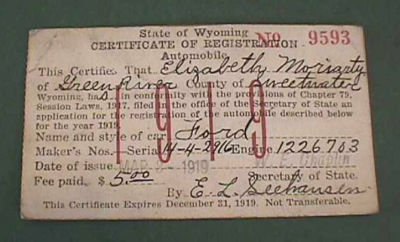 State of Wyoming
No 9593
CERTIFICATE OF REGISTRATION
Automobile
This Certifies That Elizabeth Moriarty
of Green River County of Sweetwater
Wyoming, has in conformity with the provisions of Chapter 79,
Session Laws, 1917, filed in the office of the Secretary of State an
application for the registration of the automobile described below
for the year 1919.
1919
Name and style of car Ford
Maker's Nos. Serial 14-4-2916 Engine 1226703
Date of issue MAR 1919 W. E. Chaplin
Fee paid, $ 5.00 Secretary of State.
By E. L. Seehausen
This Certificate Expires December 31, 1919. Not Transferable.